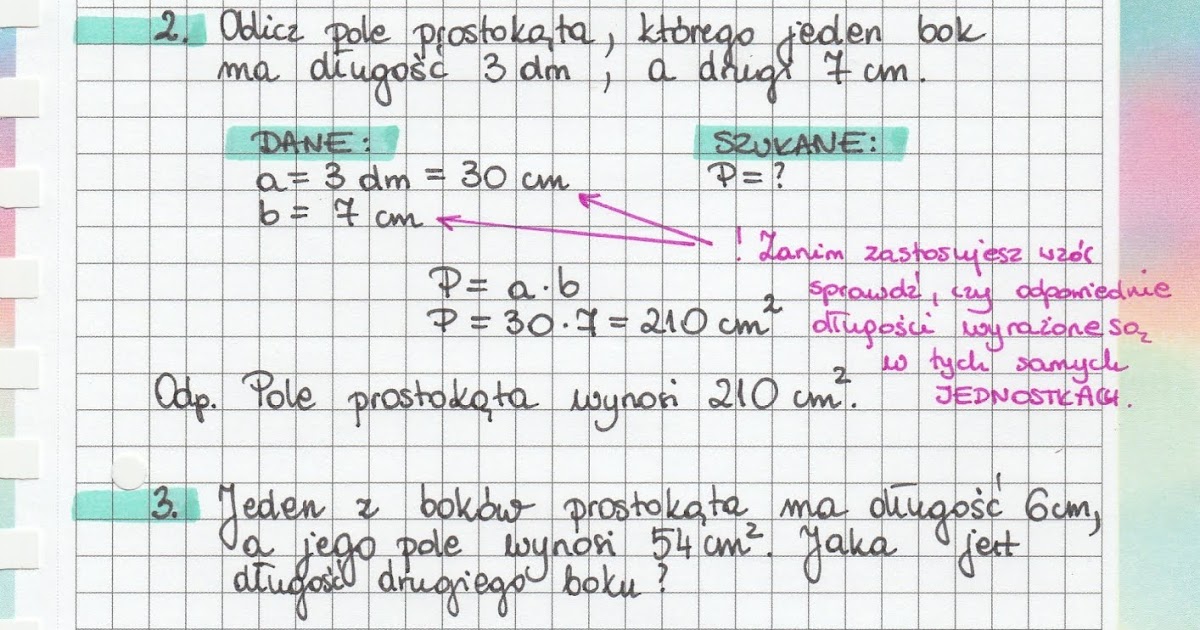 2. Oblicz pole prostokąta, którego jeden bok
ma długość 3 dm, a drugi 7 cm.
DANE:
a = 3 dm = 30 cm
b = 7 cm
SZUKANE:
P = ?
! Zanim zastosujesz wzór
sprawdź, czy odpowiednie
długości wyrażone są
w tych samych
JEDNOSTKACH.
P = a · b
P = 30 · 7 = 210 cm²
Odp. Pole prostokąta wynosi 210 cm².
3. Jeden z boków prostokąta ma długość 6cm,
a jego pole wynosi 54 cm². Jaka jest
długość drugiego boku?